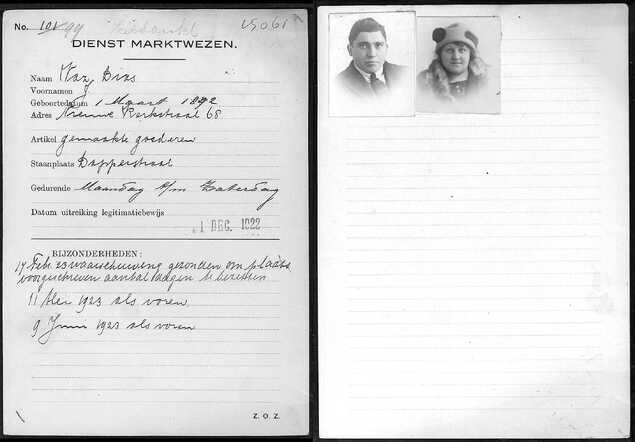 No. 101 99 Bedankt 15061
DIENST MARKTWEZEN.
Naam Waz, Dias
Voornamen
Geboortedatum 1 Maart 1892
Adres Nieuwe Kerkstraat 68
Artikel gemaakte goederen
Staanplaats Dapperstraat
Gedurende Maandag t/m Zaterdag
Datum uitreiking legitimatiebewijs
1 DEC. 1922
BIJZONDERHEDEN:
14 Feb. 23 waarschuwing gezonden om plaats
voorgeschreven aantal dagen te bezetten
11 Mei 1923 als voren
9 Juni 1923 als voren
Z. O. Z.